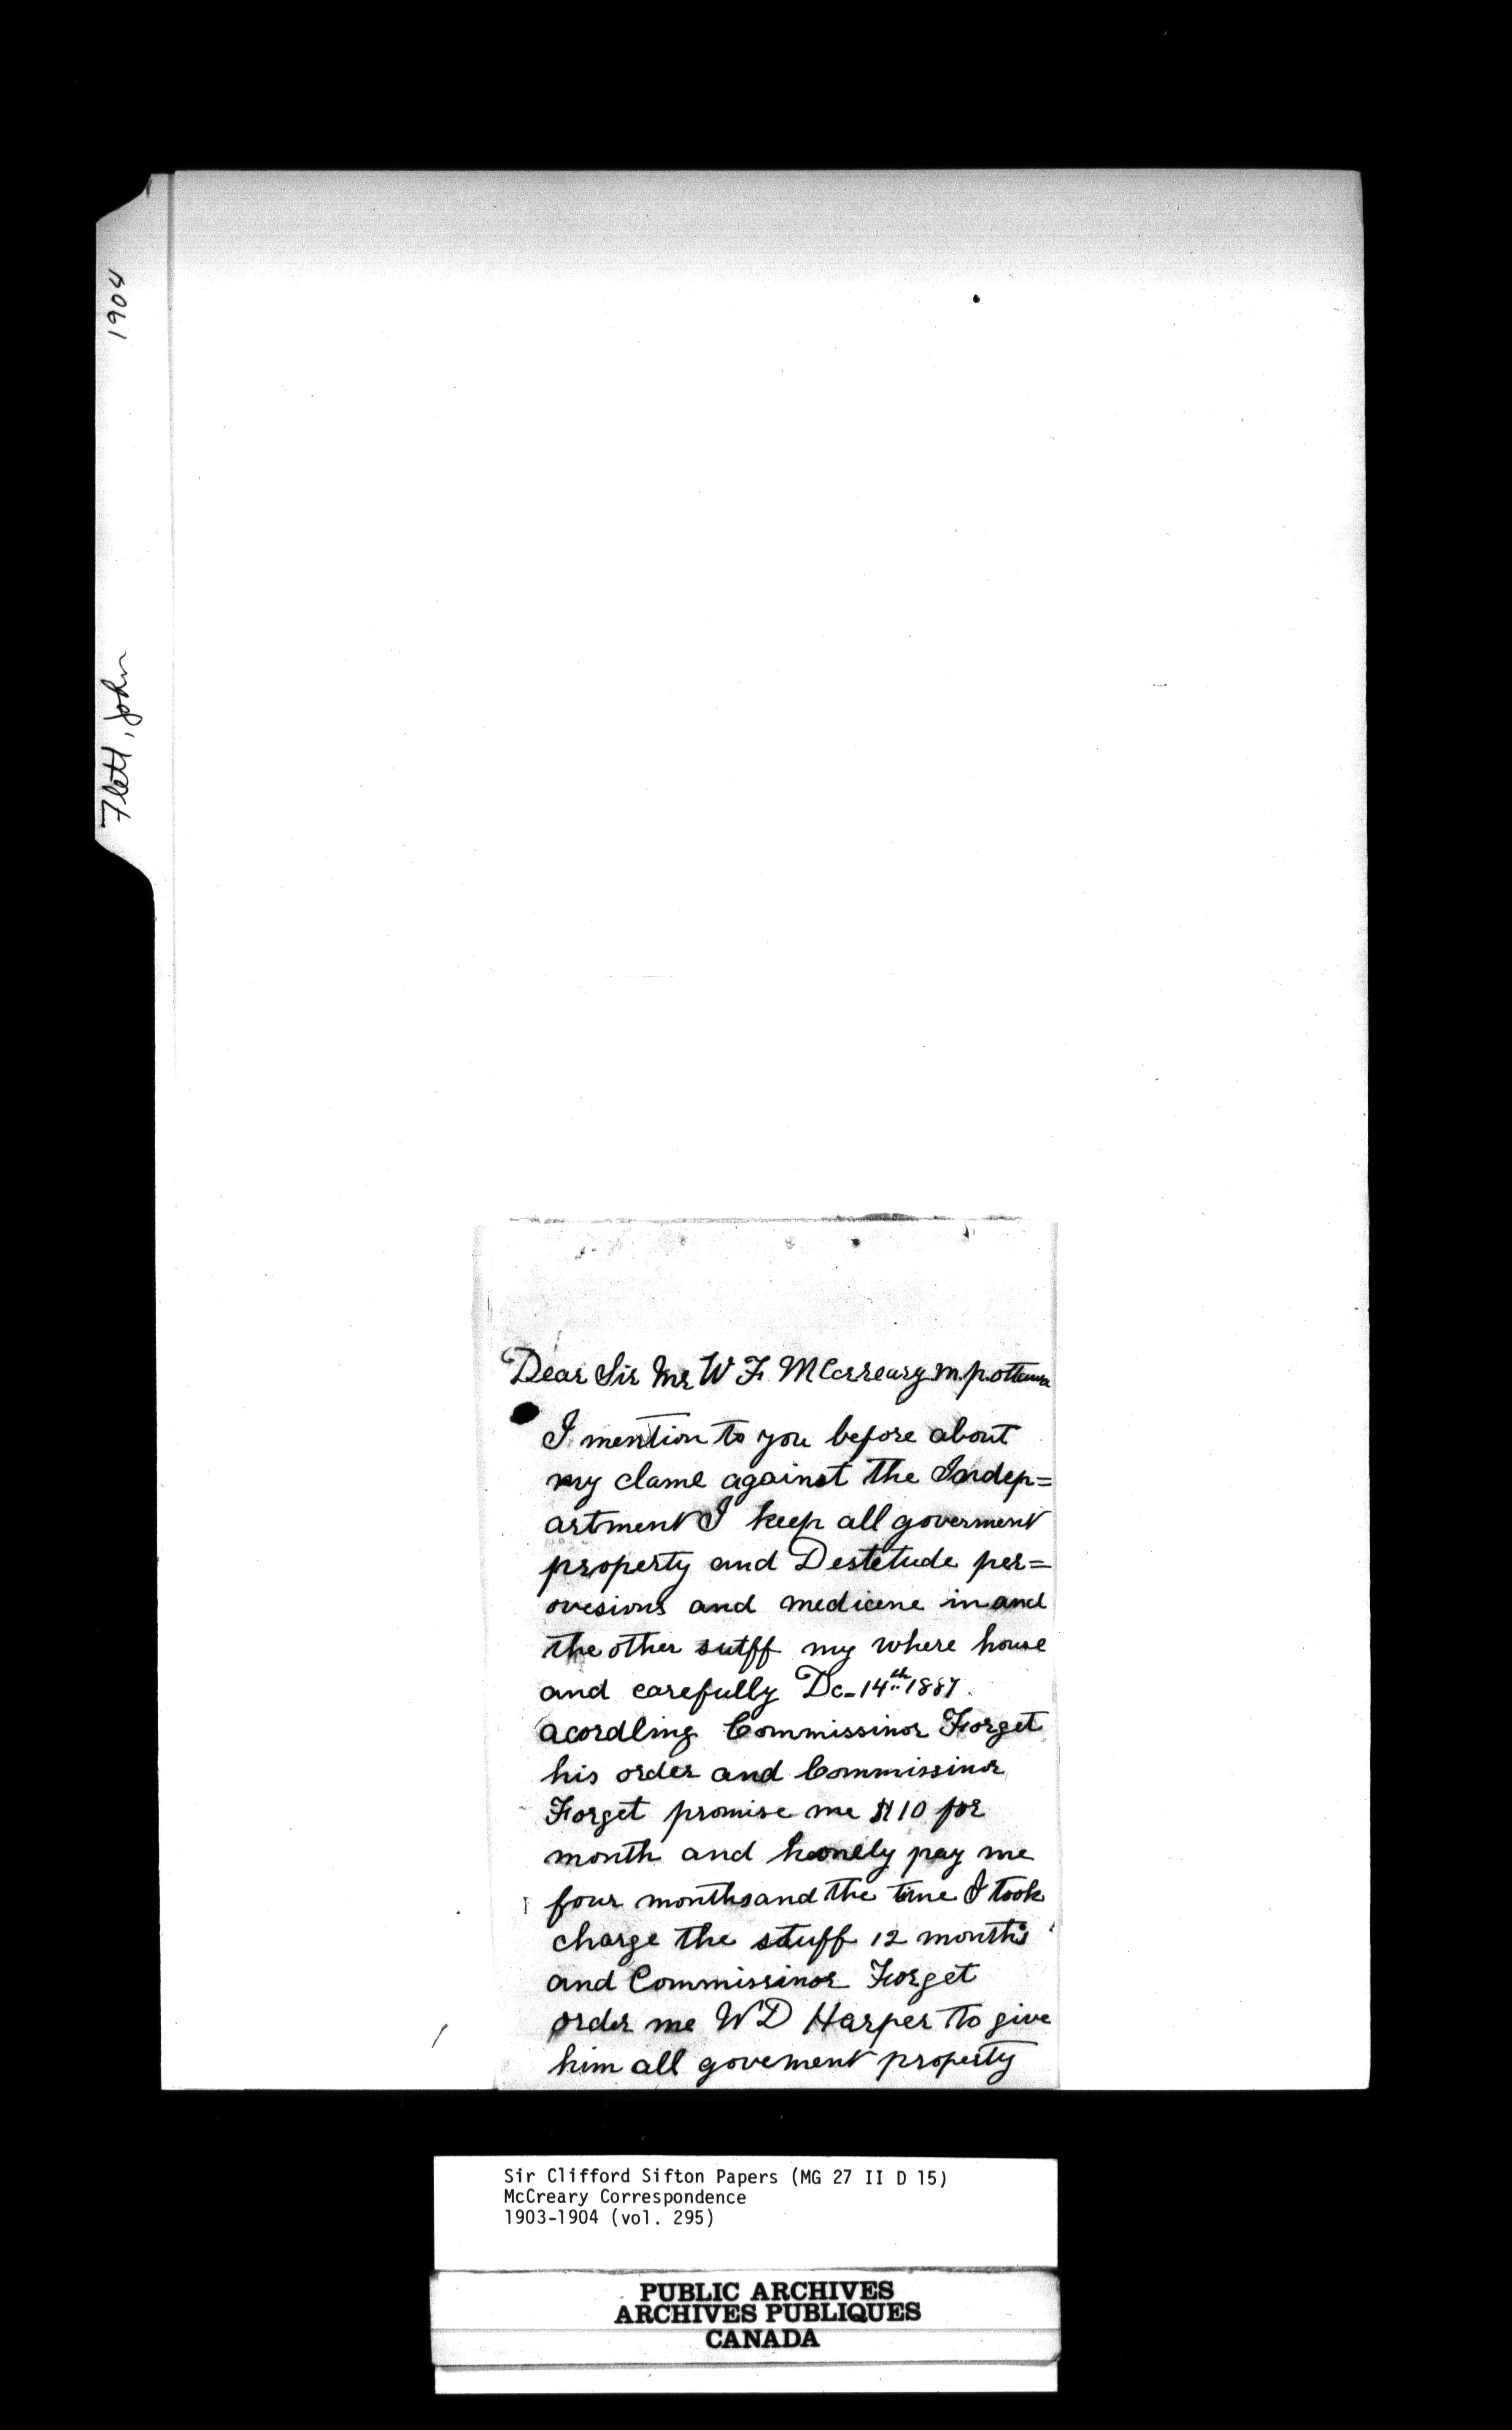 1904
Flett, John
Dear Sir Mr W F. MCcrreary m.p. ottawa
I mention to you before about
my clame against the Indep=
artment I keep all goverment
property and Destetude per=
ovesions and medicene in and
the other sutff my where house
and carefully Dc-14th 1887.
acordling Commissinor Forget
his order and Commissinor
Forget promise me $10 for
month and honely pay me
four months and the time I took
charge the stuff 12 months
and Commissinor Forget
order me W D Harper to give
him all govement property
Sir Clifford Sifton Papers (MG 27 II D 15)
McCreary Correspondence
1903-1904 (vol. 295)
PUBLIC ARCHIVES
ARCHIVES PUBLIQUES
CANADA